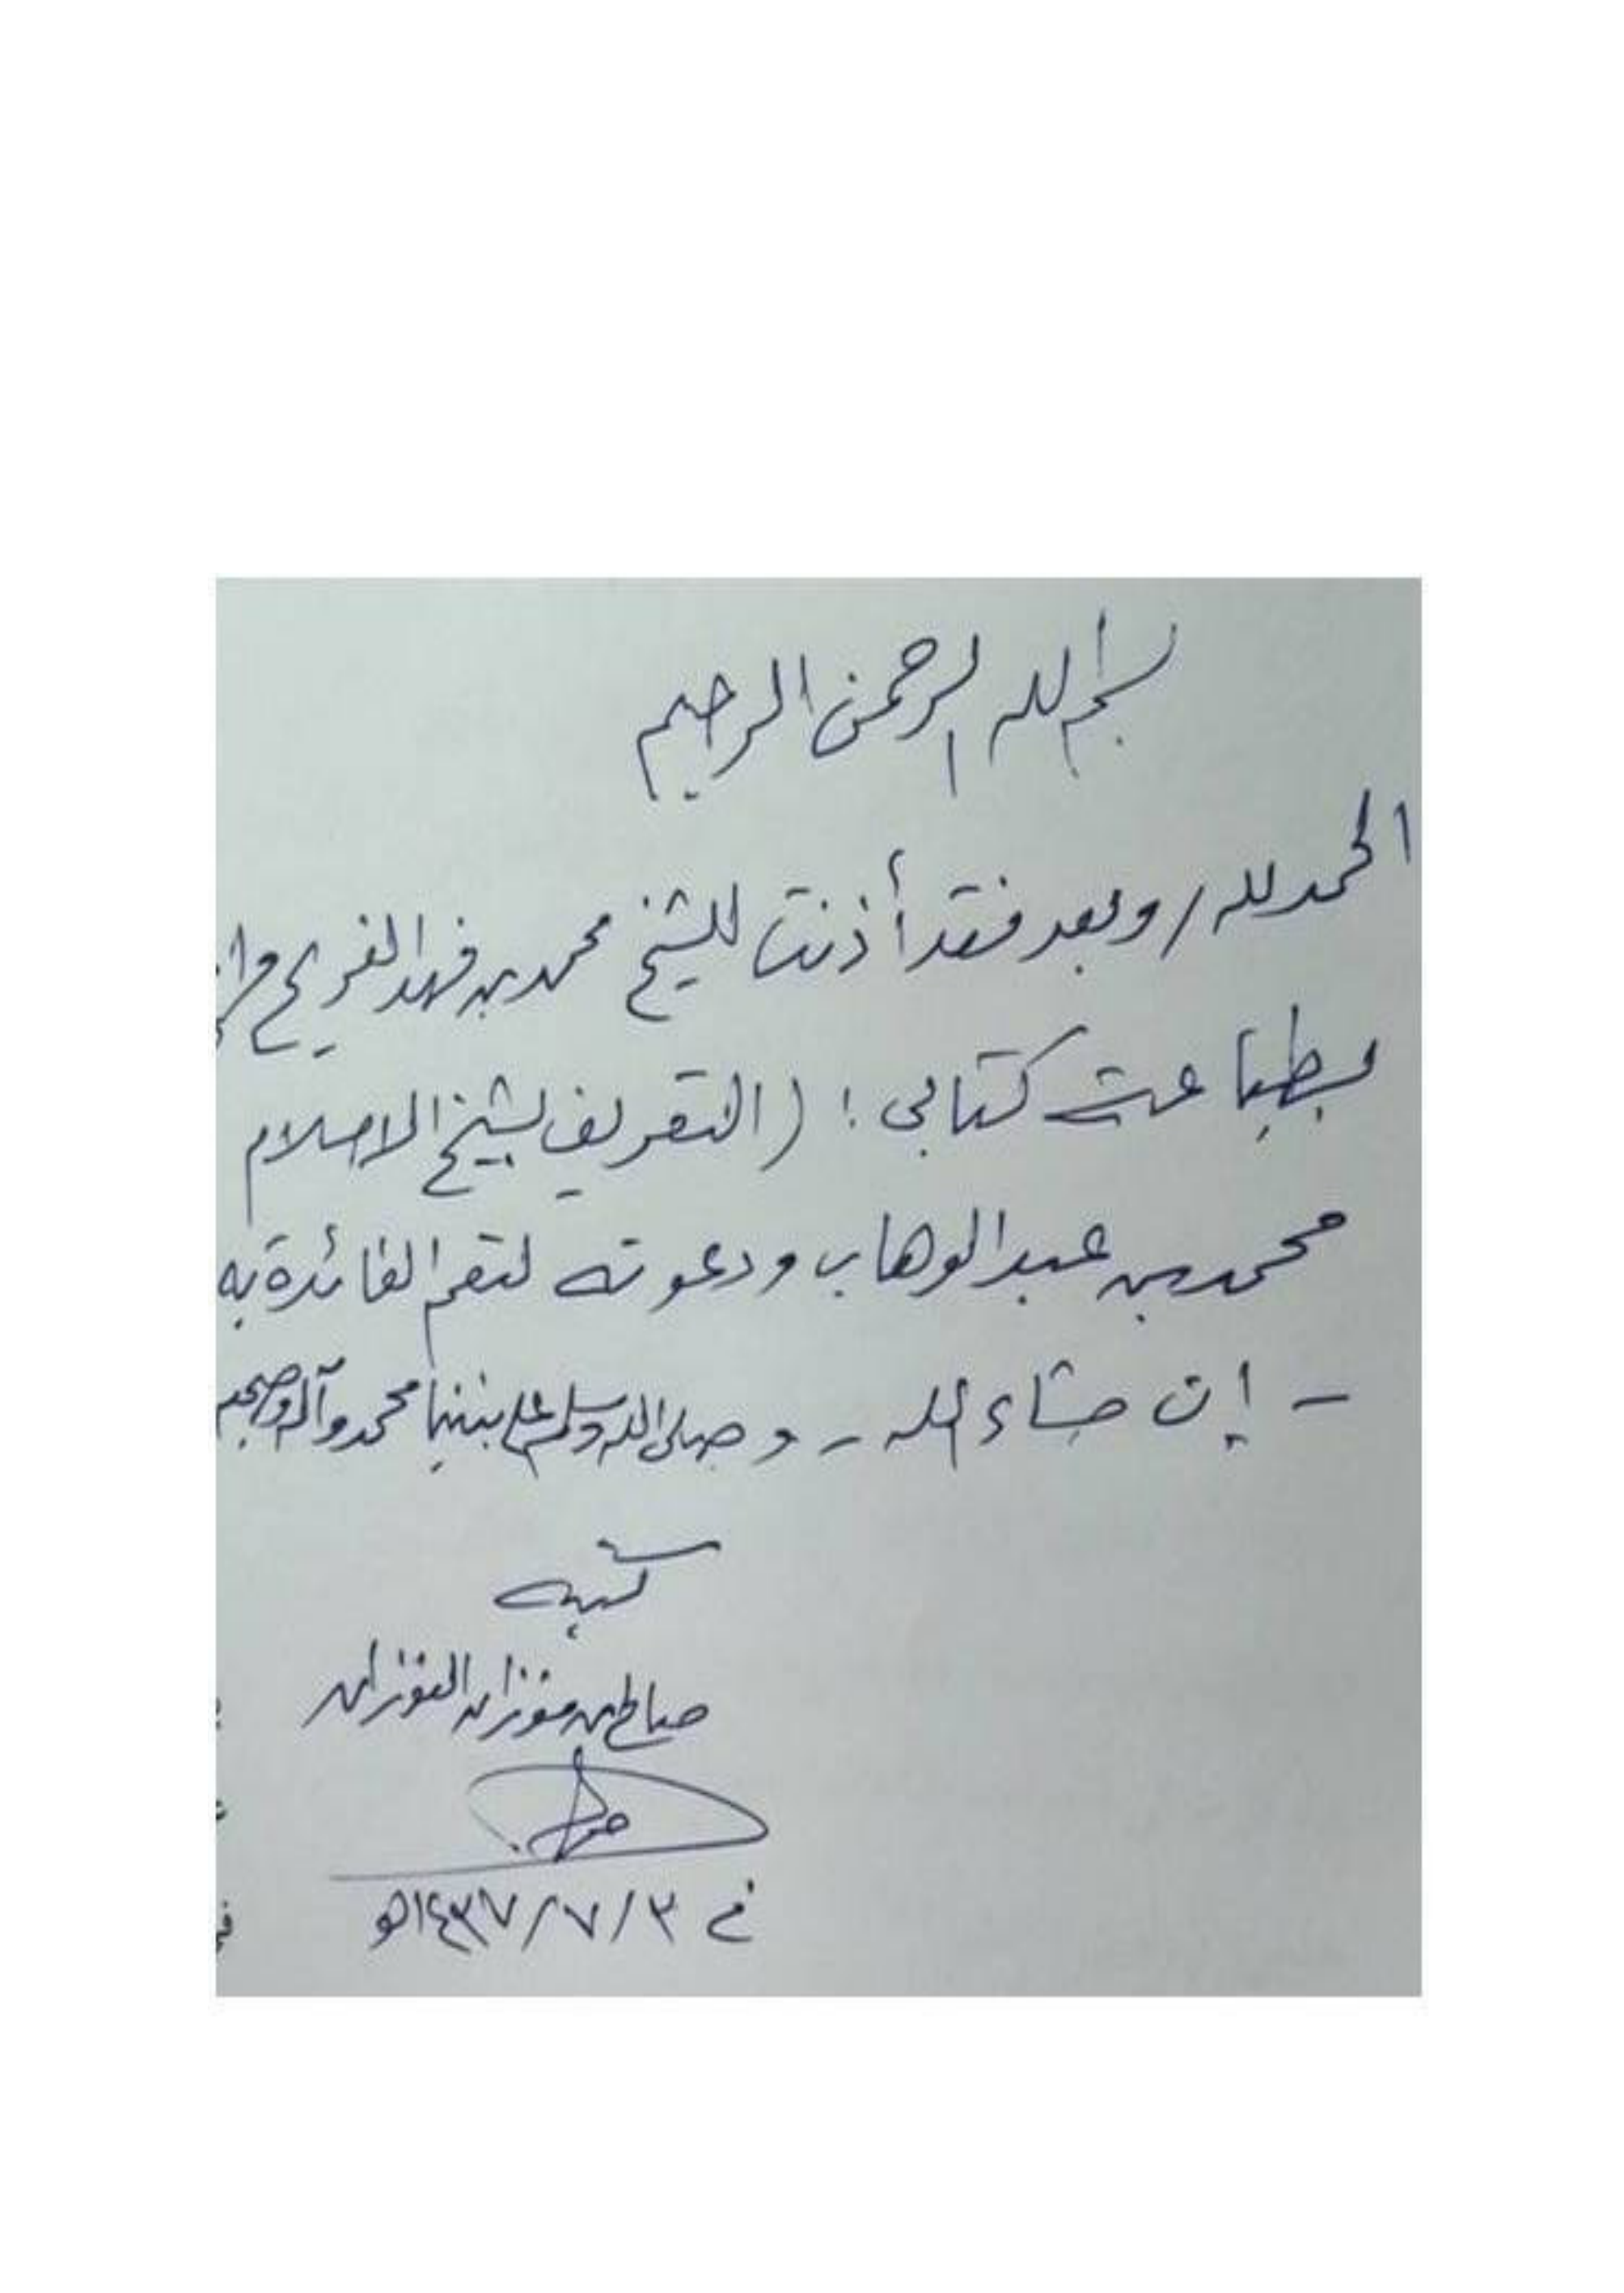 بسم الله الرحمن الرحيم
الحمد لله / وبعد فقد أذنت للشيخ محمد بن فهد الفريح
بطباعة كتابي : ( التعريف بشيخ الاسلام
محمد بن عبد الوهاب ودعوته لتعم الفائدة به
- إن شاء الله - وصلى الله وسلم على نبينا محمد وآله وصحبه
كتبه
صالح بن فوزان الفوزان
في ٣/٧/١٤٣٧هـ